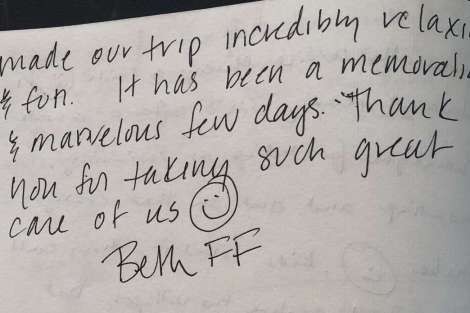 made our trip incredibly relaxi
& fun. It has been a memorabl
& marvelous few days. Thank
you for taking such great
care of us
Beth FF